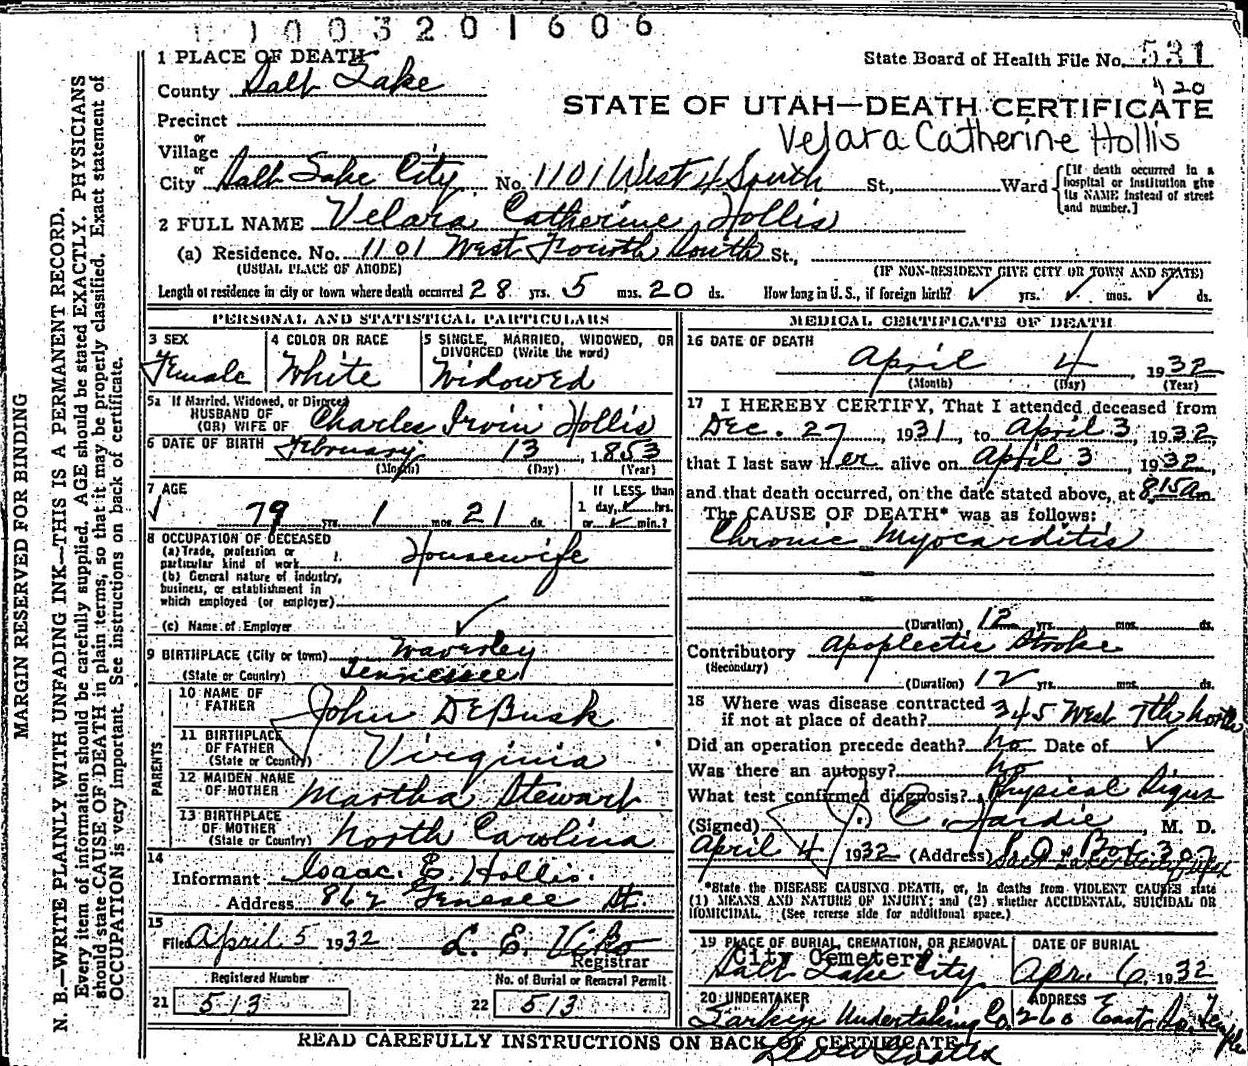 1003201606
State Board of Health File No. 531
420
STATE OF UTAH—DEATH CERTIFICATE
Velara Catherine Hollis
MARGIN RESERVED FOR BINDING
N. B.—WRITE PLAINLY WITH UNFADING INK—THIS IS A PERMANENT RECORD.
Every item of information should be carefully supplied. AGE should be stated EXACTLY. PHYSICIANS
should state CAUSE OF DEATH in plain terms, so that it may be properly classified. Exact statement of
OCCUPATION is very important. See instructions on back of certificate.
1 PLACE OF DEATH
County Salt Lake
Precinct
or
Village
or
City Salt Lake City No. 1101 West 4 South St., Ward
[If death occurred in a
hospital or institution give
its NAME instead of street
and number.]
2 FULL NAME Velara Catherine Hollis
(a) Residence. No. 1101 West Fourth South St.,
(USUAL PLACE OF ABODE) (IF NON-RESIDENT GIVE CITY OR TOWN AND STATE)
Length of residence in city or town where death occurred 28 yrs. 5 mos. 20 ds. How long in U.S., if foreign birth? ✓ yrs. ✓ mos. ✓ ds.
PERSONAL AND STATISTICAL PARTICULARS
3 SEX
Female
4 COLOR OR RACE
White
5 SINGLE, MARRIED, WIDOWED, OR
DIVORCED (Write the word)
Widowed
5a If Married, Widowed, or Divorced
HUSBAND OF
(OR) WIFE OF Charles Irvin Hollis
6 DATE OF BIRTH February 13, 1853
(Month) (Day) (Year)
7 AGE
79 yrs. 1 mos. 21 ds.
If LESS than
1 day, ✓ hrs.
or ✓ min.?
8 OCCUPATION OF DECEASED
(a) Trade, profession or
particular kind of work Housewife
(b) General nature of industry,
business, or establishment in
which employed (or employer)
(c) Name of Employer
9 BIRTHPLACE (City or town) Waverley
(State or Country) Tennessee
PARENTS
10 NAME OF
FATHER John DeBusk
11 BIRTHPLACE
OF FATHER
(State or Country) Virginia
12 MAIDEN NAME
OF MOTHER Martha Stewart
13 BIRTHPLACE
OF MOTHER
(State or Country) North Carolina
14
Informant Isaac. E. Hollis.
Address 862 Genesee St.
15
Filed April 5 1932 L. E. Viko
Registrar
Registered Number
21 513
No. of Burial or Removal Permit
22 513
MEDICAL CERTIFICATE OF DEATH
16 DATE OF DEATH
April 4, 1932
(Month) (Day) (Year)
17 I HEREBY CERTIFY, That I attended deceased from
Dec. 27, 1931, to April 3, 1932,
that I last saw her alive on April 3, 1932,
and that death occurred, on the date stated above, at 8:15 a m.
The CAUSE OF DEATH* was as follows:
Chronic Myocarditis
(Duration) 12 yrs. mos. ds.
Contributory Apoplectic Stroke
(Secondary)
(Duration) 12 yrs. mos. ds.
18 Where was disease contracted
if not at place of death? 345 West 7th North
Did an operation precede death? No Date of ✓
Was there an autopsy? No
What test confirmed diagnosis? Physical Signs
(Signed) J. C. Hardie, M. D.
April 4 1932 (Address) P.O. Box 307
*State the DISEASE CAUSING DEATH, or, in deaths from VIOLENT CAUSES state
(1) MEANS AND NATURE OF INJURY; and (2) whether ACCIDENTAL, SUICIDAL OR
HOMICIDAL. (See reverse side for additional space.)
19 PLACE OF BURIAL, CREMATION, OR REMOVAL
City Cemetery
Salt Lake City
DATE OF BURIAL
Apr. 6, 1932
20 UNDERTAKER
Larkin Undertaking Co.
ADDRESS
260 East So. Temple
READ CAREFULLY INSTRUCTIONS ON BACK OF CERTIFICATE